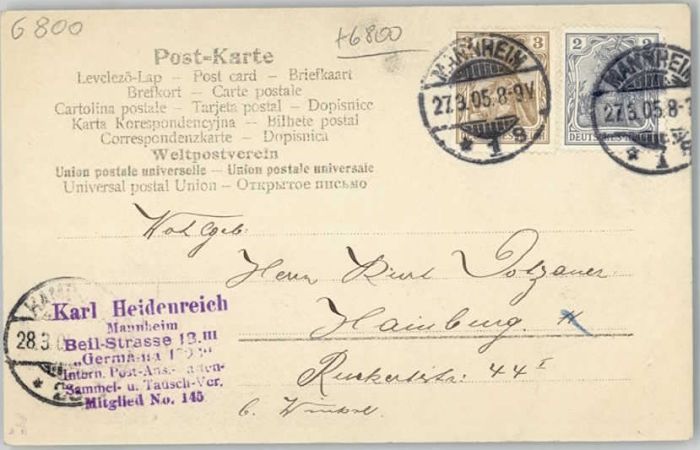 6800
+6800
Post-Karte
Levelező-Lap – Post card – Briefkaart
Brefkort – Carte postale
Cartolina postale – Tarjeta postal – Dopisnice
Karta Korespondencyjna – Bilhete postal
Correspondenzkarte – Dopisnica
Weltpostverein
Union postale universelle – Union postale universale
Universal postal Union – Открытое письмо
3
2
DEUTSCHES
MANNHEIM
27.3.05.8-9V
* 1 s
MANNHEIM
27.3.05.8-
* 1
Wohlgeb.
Herrn Kurt Dolzauer
Hamburg
Ruckertstr: 44 I
b. Winkel
28.3
Karl Heidenreich
Mannheim
Beil-Strasse 12.III
„Germania
Intern. Post-Ans.-Karten-
Sammel- u. Tausch-Ver.
Mitglied No. 145